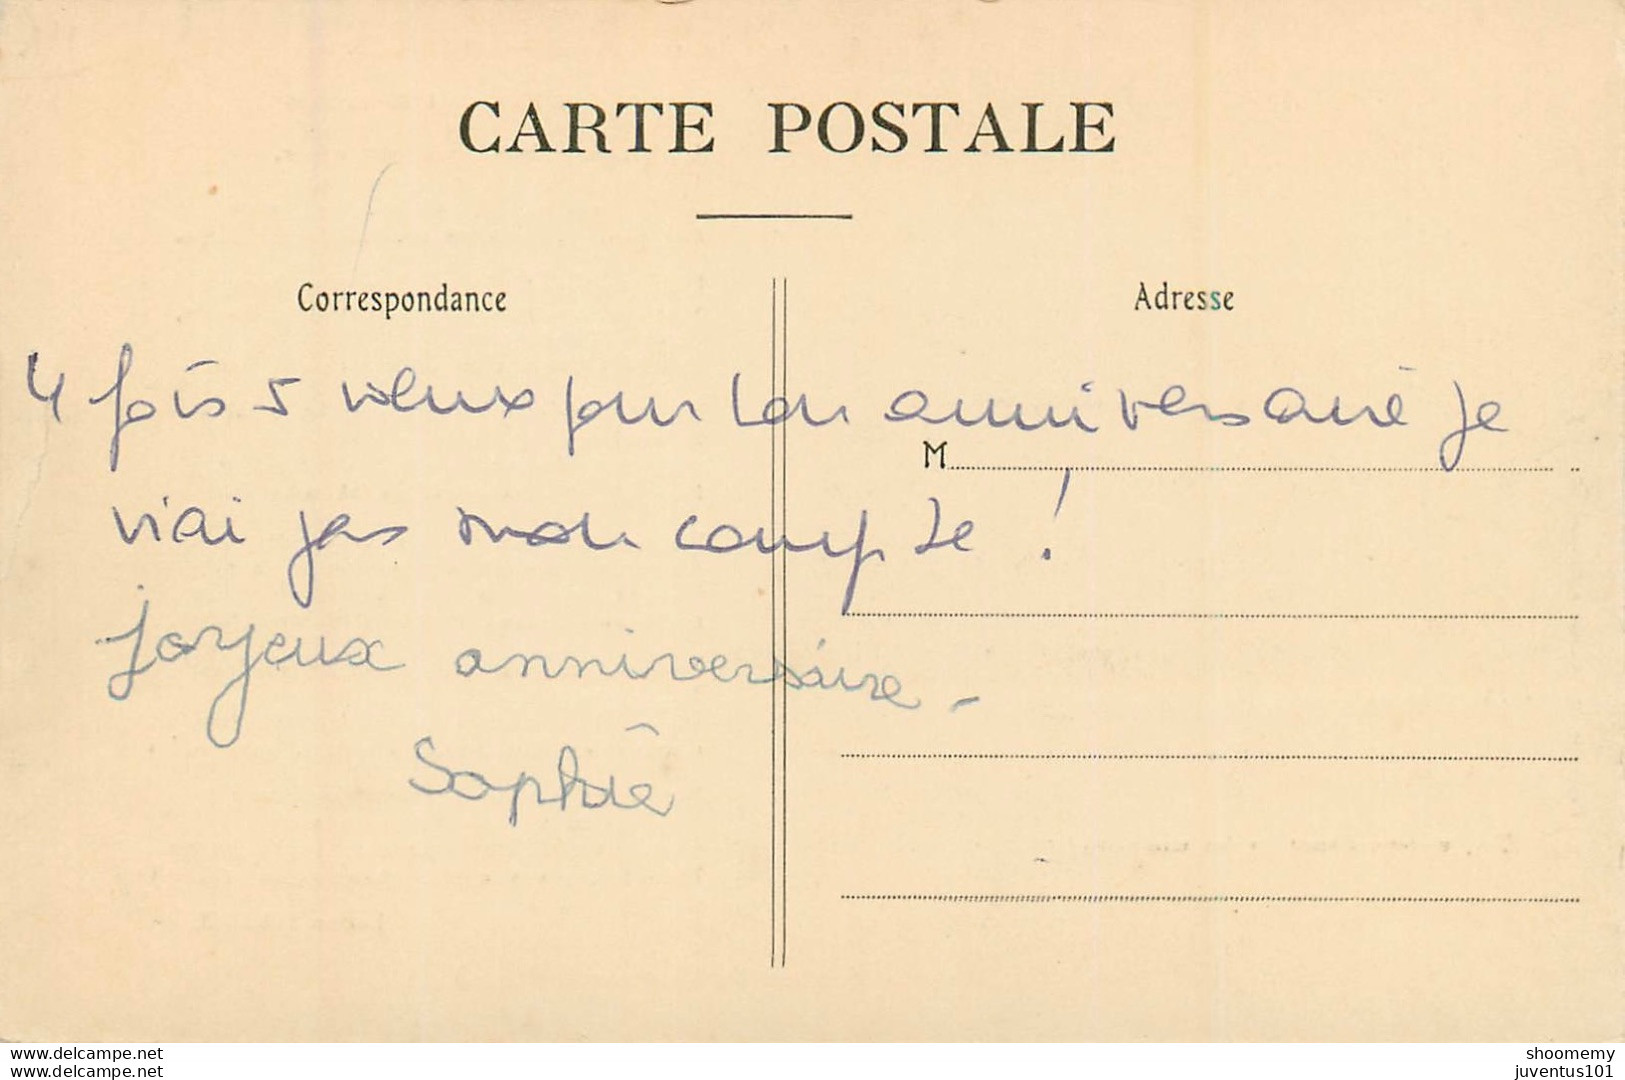 CARTE POSTALE
Correspondance
Adresse
4 fois 5 voeux pour ton anniversaire je
M
n'ai pas mon compte !
joyeux anniversaire -
Sophie
www.delcampe.net
www.delcampe.net
shoomemy
juventus101